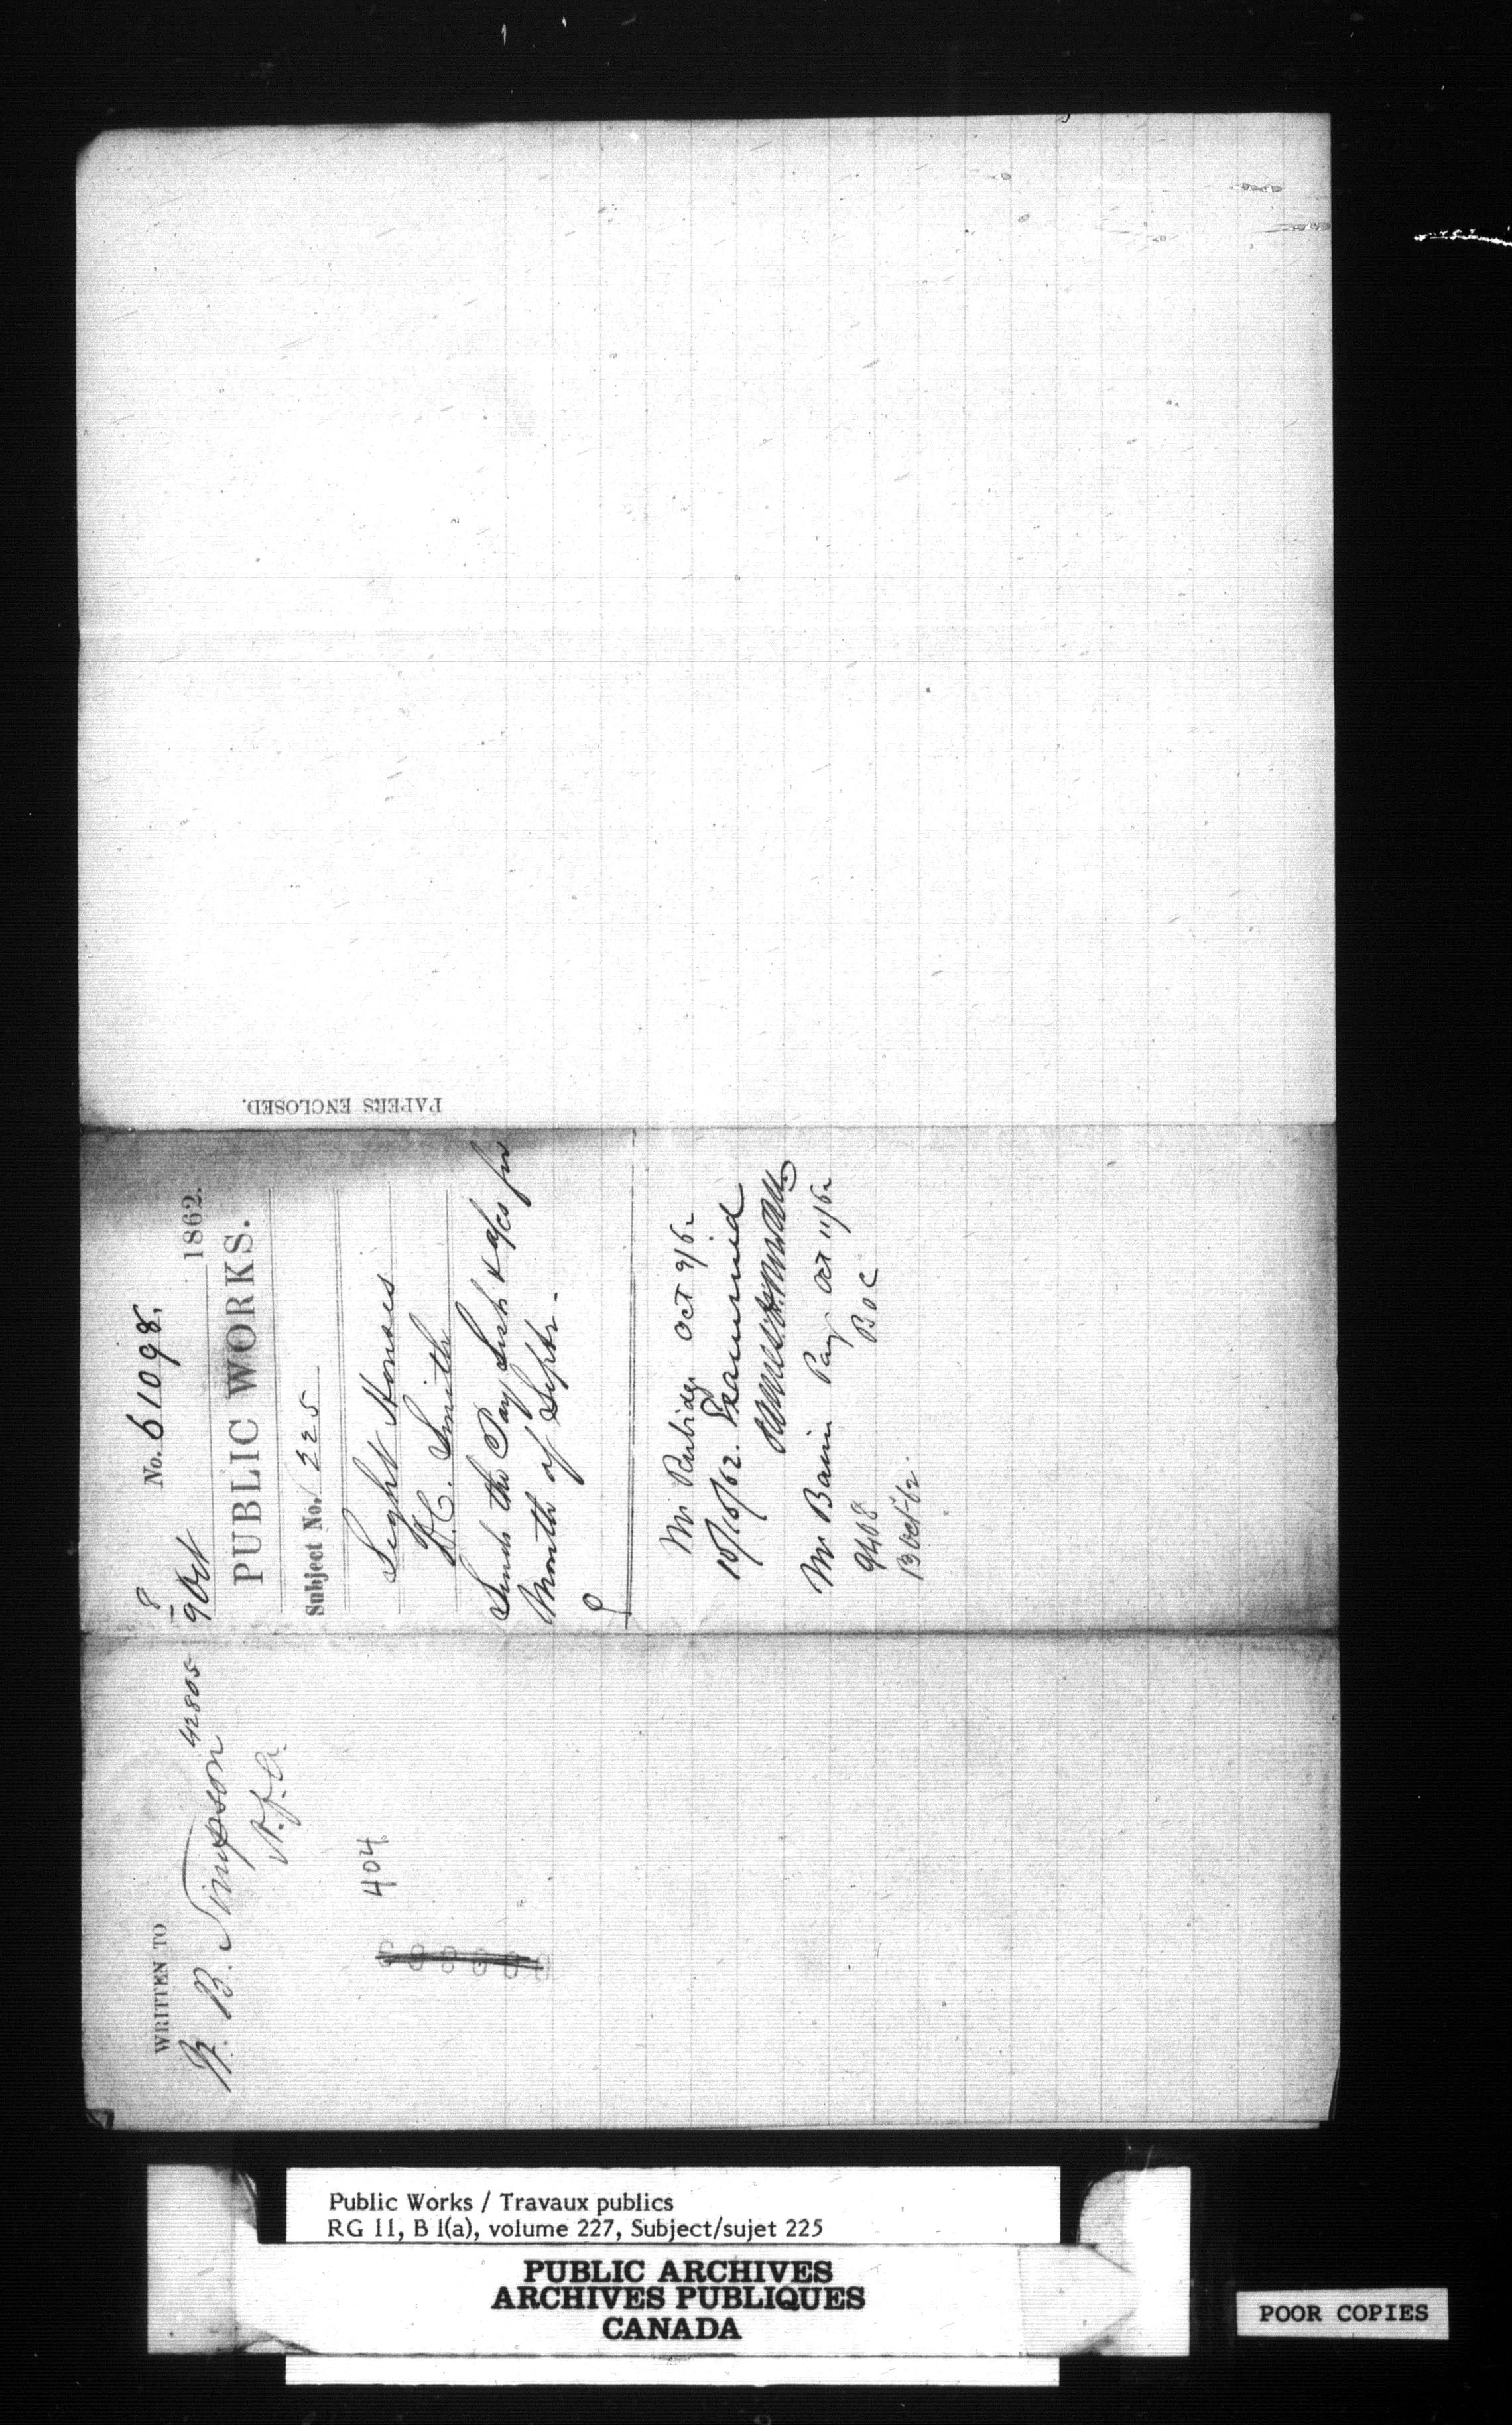 WRITTEN TO
W. B. Simpson 42805
404
8
No. 61098.
9 Oct 1862.
PUBLIC WORKS.
Subject No. 225
Light Houses
D.C. Smith
Sends the Pay Lists & a/cs for
Month of Septr.
Mr Rubidge Oct 9/62
10/10/62. Examined
Mr Bain Pay Oct 11/62
B O C
9408
13 Oct-62.
PAPERS ENCLOSED.
Public Works / Travaux publics
RG 11, B 1(a), volume 227, Subject/sujet 225
PUBLIC ARCHIVES
ARCHIVES PUBLIQUES
CANADA
POOR COPIES